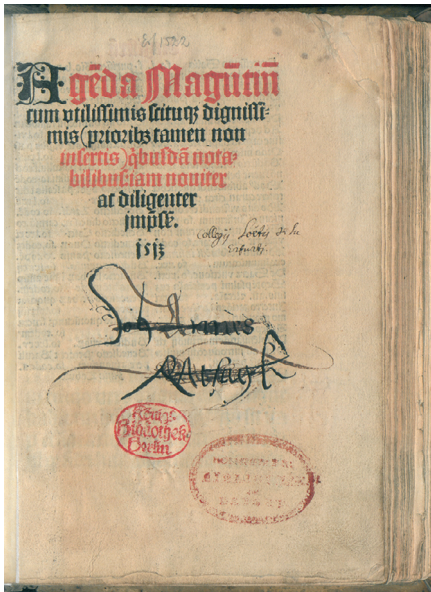 Agēda Magūtiñ
cum vtilissimis scituqꝫ dignissi-
mis (prioribꝫ tamen non
insertis) q̇busdā nota-
bilibus: iam nouiter
ac diligenter
jmp̄sē.
j5j3
Collegij
Erfurti
Königl.
Bibliothek
Berlin.